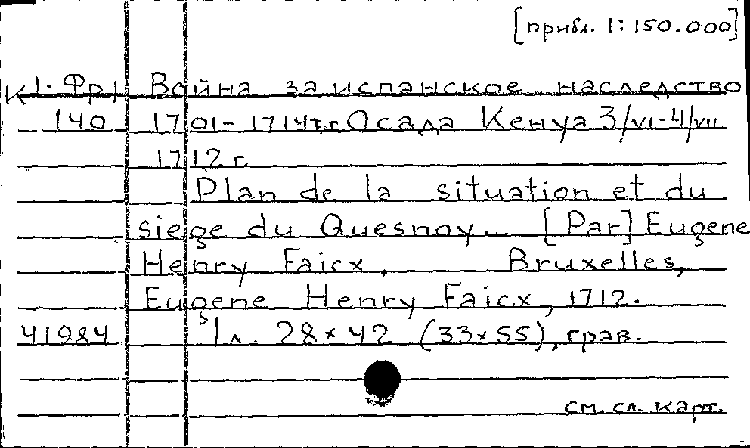 [прибл. 1:150.000]
К 1-Фр1 Война за испанское наследство
140 1701-1714гг. Осада Кенуа 3/VI-4/VII
1712 г.
Plan de la situation et du
siege du Quesnoy. [Par] Eugene
Henry Faicx. Bruxelles,
Eugene Henry Faicx, 1712.
41984 1 л. 28×42 (33×55), грав.
см. сл. карт.